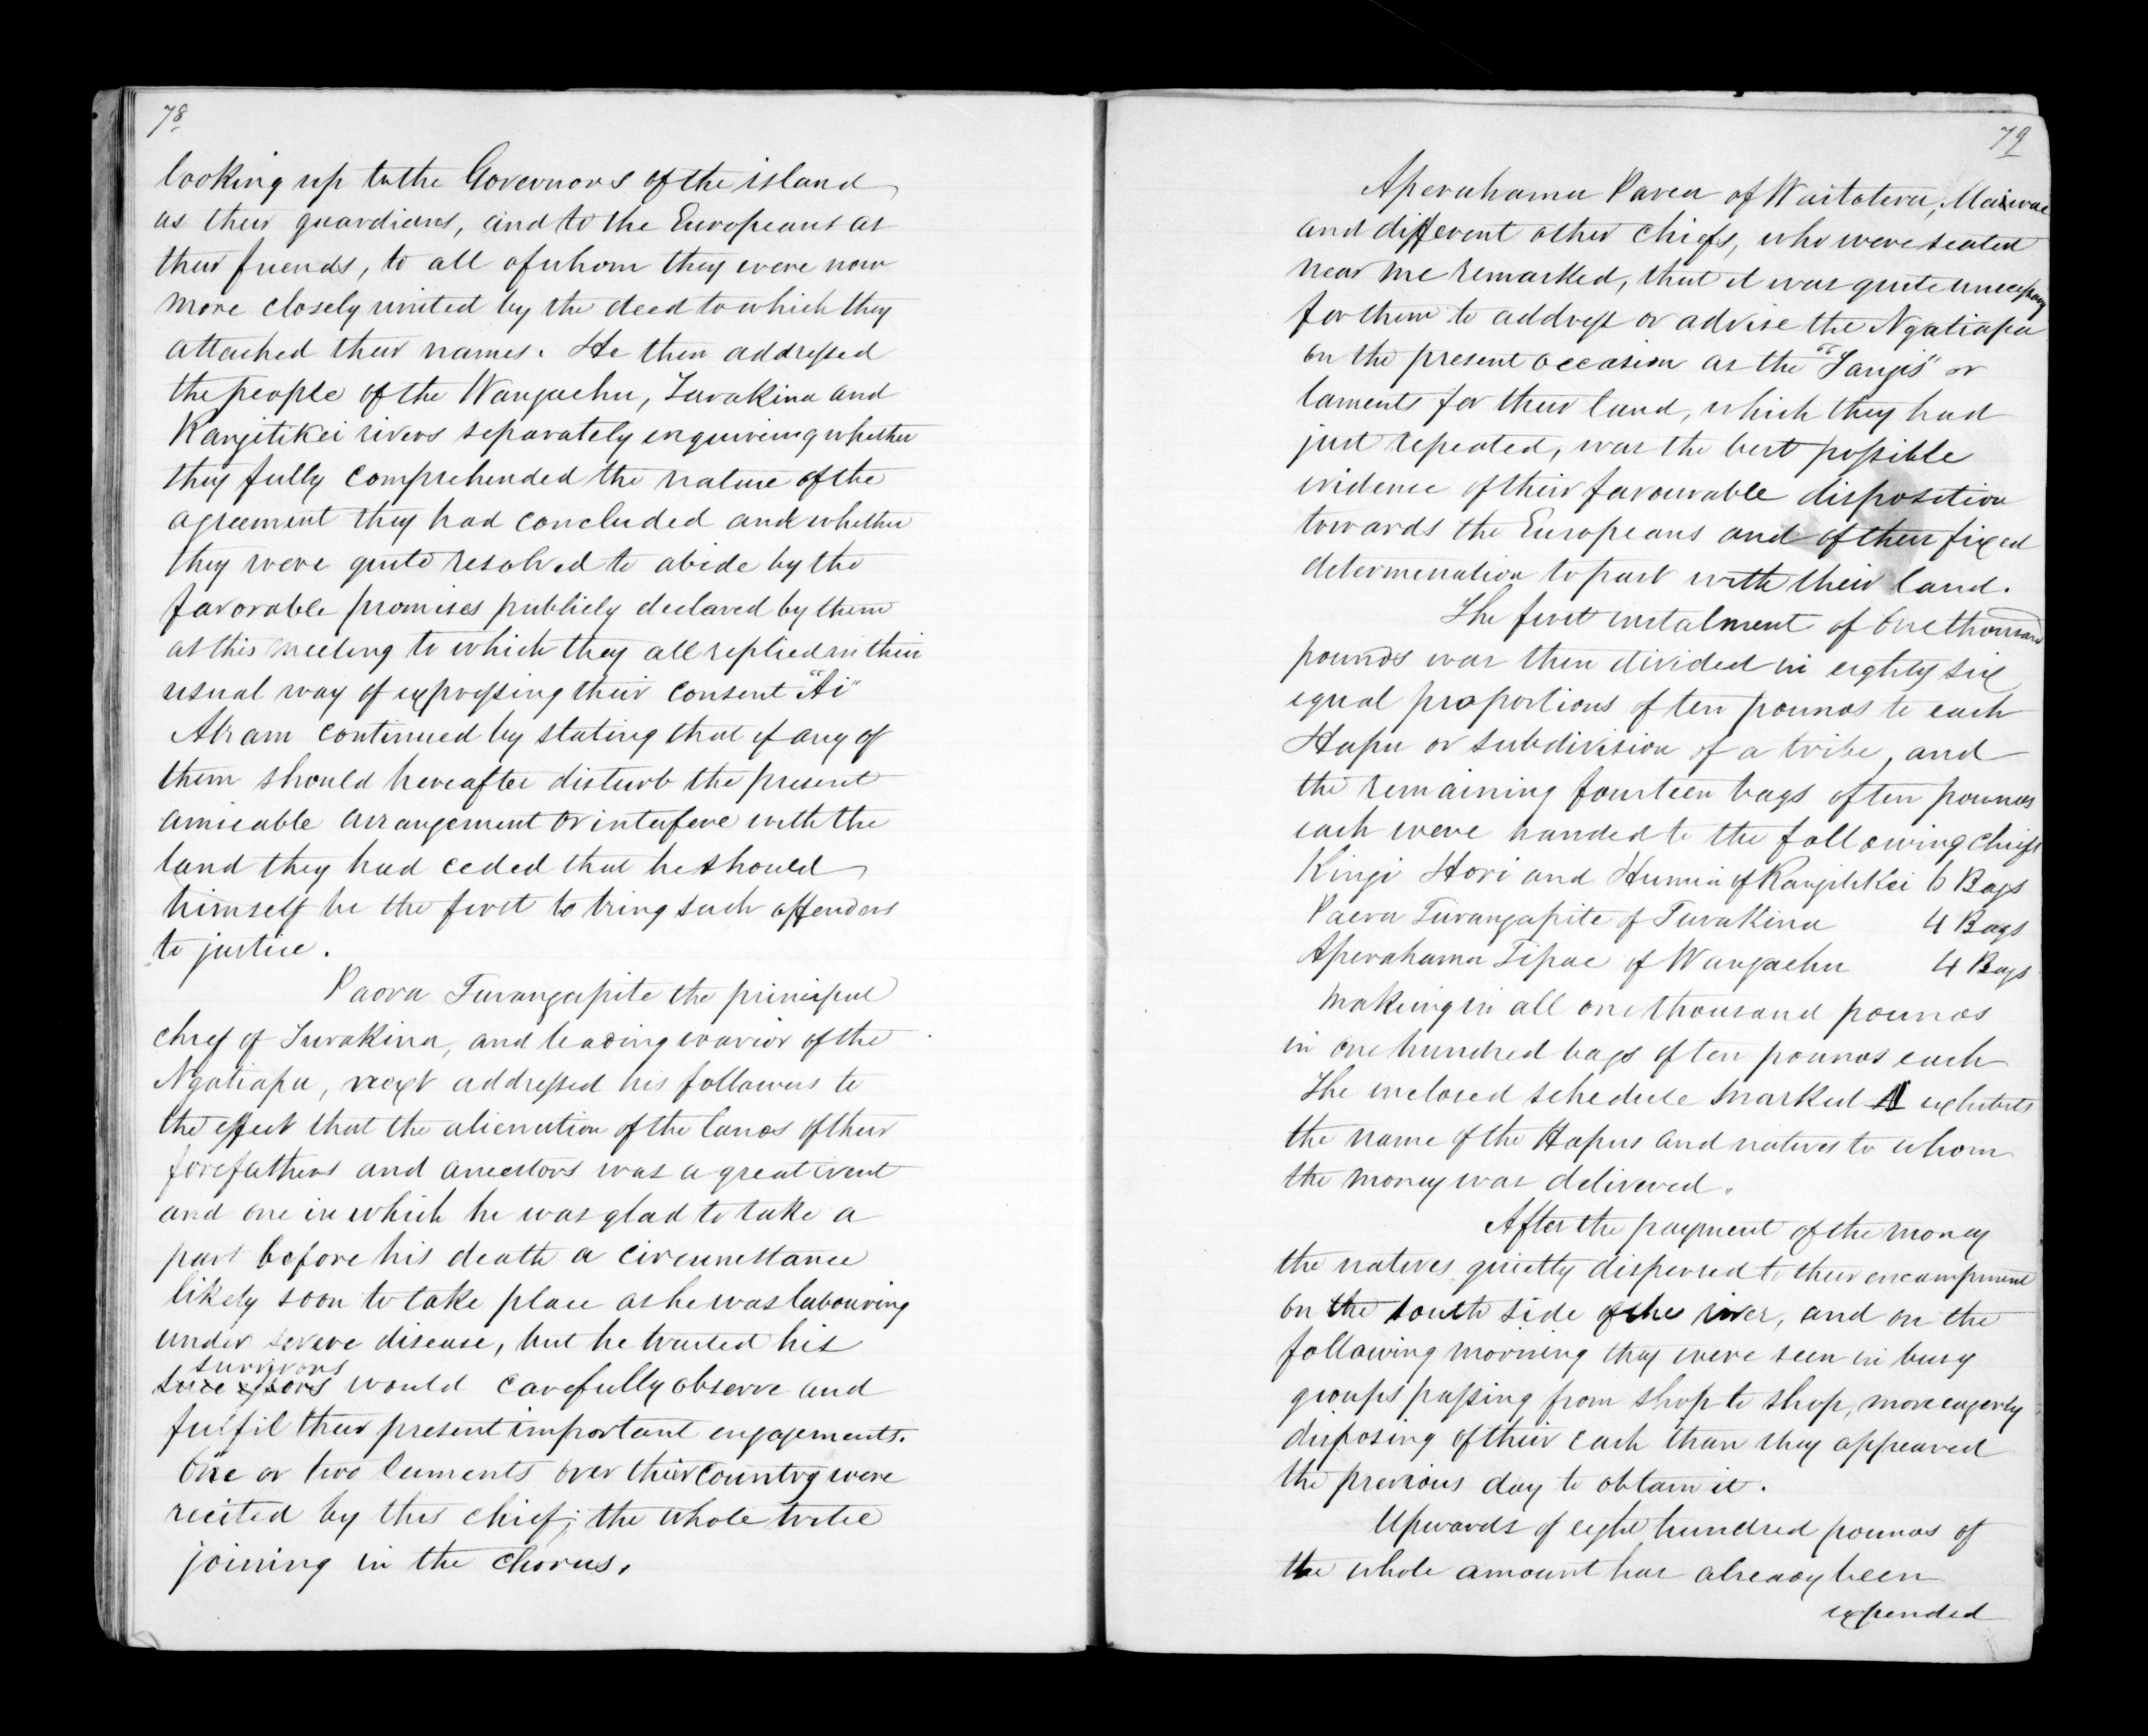 78
looking up to the Governors of the island
as their guardians, and to the Europeans as
their friends, to all of whom they were now
more closely united by the deed to which they
attached their names. He then addressed
the people of the Wangaehu, Turakina and
Rangitikei rivers separately enquireing whether
they fully comprehended the nature of the
agreement they had concluded and whether
they were quite resolved to abide by the
favorable promises publicly declared by them
at this meeting to which they all replied in their
usual way of expressing their consent "Ai"
Abram continued by stating that if any of
them should hereafter disturb the present
amicable arrangement or interfere with the
land they had ceded that he should
himself be the first to bring such offenders
to justice.
Paora Turangapite the principal
chief of Turakina, and leading warior of the
Ngatiapa, next addressed his followers to
the effect that the alienation of the lands of their
forefathers and ancestors was a great event
and one in which he was glad to take a
part before his death a circumstance
likely soon to take place as he was labouring
under severe disease, but he trusted his
survivors
successors would carefully observe and
fulfil their present important engagements.
One or two laments over their country were
recited by this chief; the whole tribe
joining in the chorus.
79
Aperahama Parea of Waitotera,
and different other chiefs, who were seated
near me remarked, that it was quite unnecessary
for them to address or advise the Ngatiapa
on the present occasion as the "Tangis" or
laments for their land, which they had
just repeated, was the best possible
evidence of their favourable disposition
towards the Europeans and of their fixed
determination to part with their land.
The first instalment of one thousand
pounds was then divided in eighty six
equal proportions of ten pounds to each
Hapu or subdivision of a tribe, and
the remaining fourteen bags of ten pounds
each were handed to the following chiefs
Kingi Hori and Hunia of Rangitikei 6 Bags
Paora Turangapite of Turakina 4 Bags
Aperahama Tipae of Wangaehu 4 Bags
makeing in all one thousand pounds
in one hundred bags of ten pounds each
The inclosed schedule marked A exhibits
the name of the Hapus and natives to whom
the money was delivered.
After the payment of the money
the natives quietly dispersed to their encampment
on the south side of the river, and on the
following morning they were seen in busy
groups passing from shop to shop, more eagerly
disposing of their cash than they appeared
the previous day to obtain it.
Upwards of eight hundred pounds of
the whole amount has already been
expended